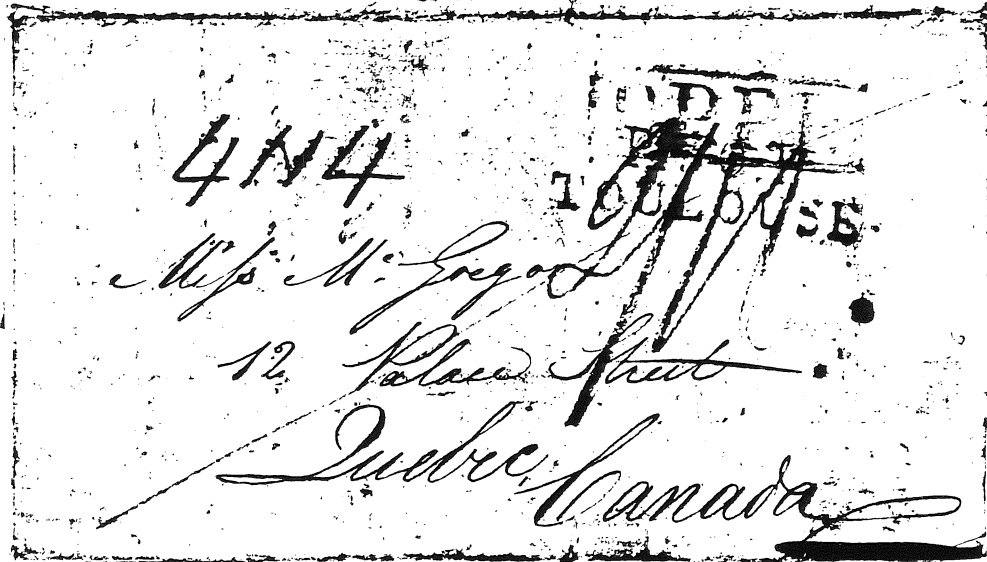 4N4
TOULOUSE
Miss Mc. Gregor
12 Palace Street
Quebec,
Canada